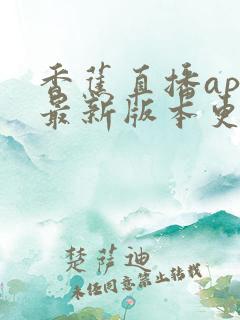 香蕉直播ap
最新版本更
楚萨迪
未经同意禁止转载